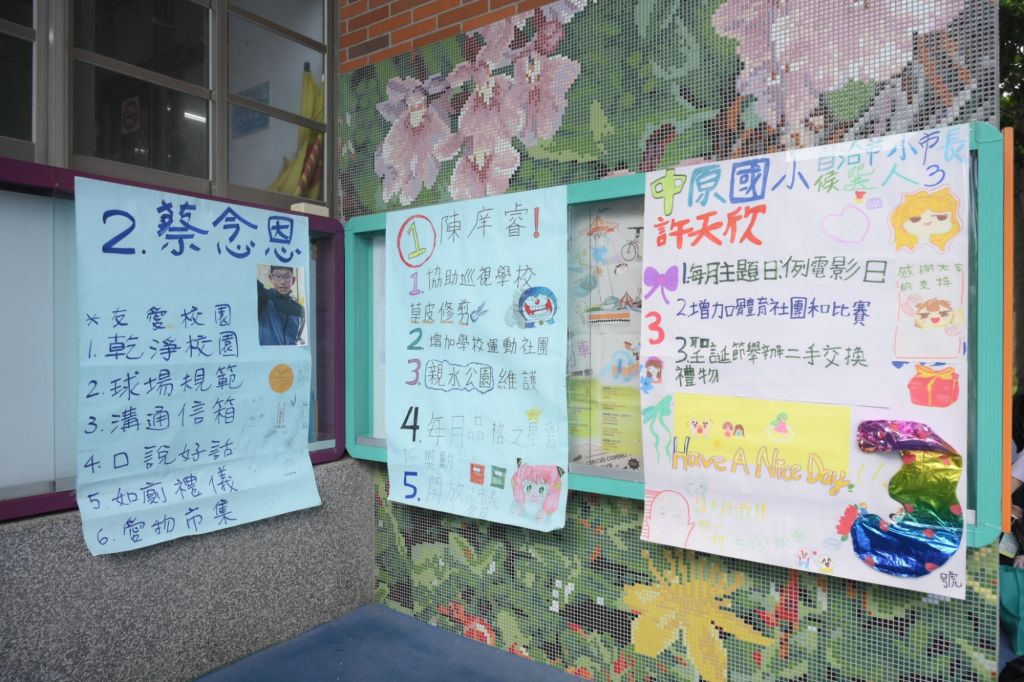 2. 蔡念恩
*友愛校園
1. 乾淨校園
2. 球場規範
3. 溝通信箱
4. 口說好話
5. 如廁禮儀
6. 愛物市集
1 陳庠睿!
1. 協助巡視學校
草皮修剪
2 增加學校運動社團
3. 親水公園維護
4. 每月品格之星
獎勵
5. 開放
中原國小自治小市長
候選人3
許天欣
感謝大家
的支持
1.每月主題日:例電影日
2.增加體育社團和比賽
3
3.聖誕節舉辦二手交換
禮物
Have A Nice Day!!
3
號